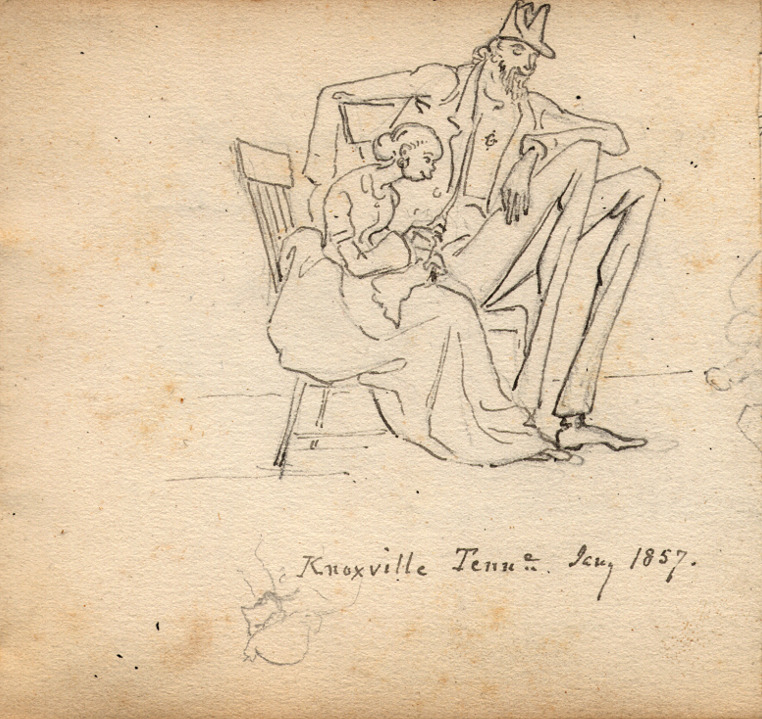 Knoxville Tennᵉ. Jany 1857.